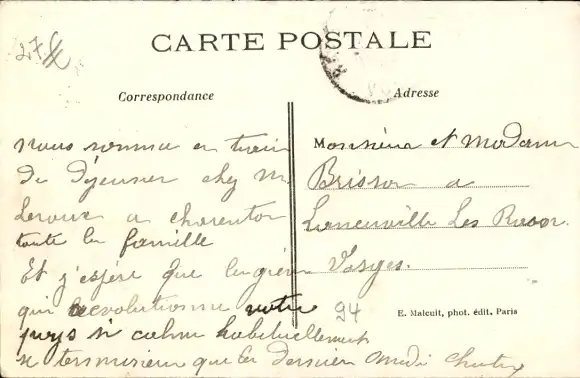 27
CARTE POSTALE
Correspondance
Adresse
nous somme en train
de déjeuner chez M.
Leroux a charenton
toute la famille
Et j'espère que
qui revolutionne votre
pays si calme habituellement
se que la dernier
Monsieur et Madame
Brisson a
Laneuville Les Raon.
Vosges.
94
E. Malcuit, phot. édit., Paris